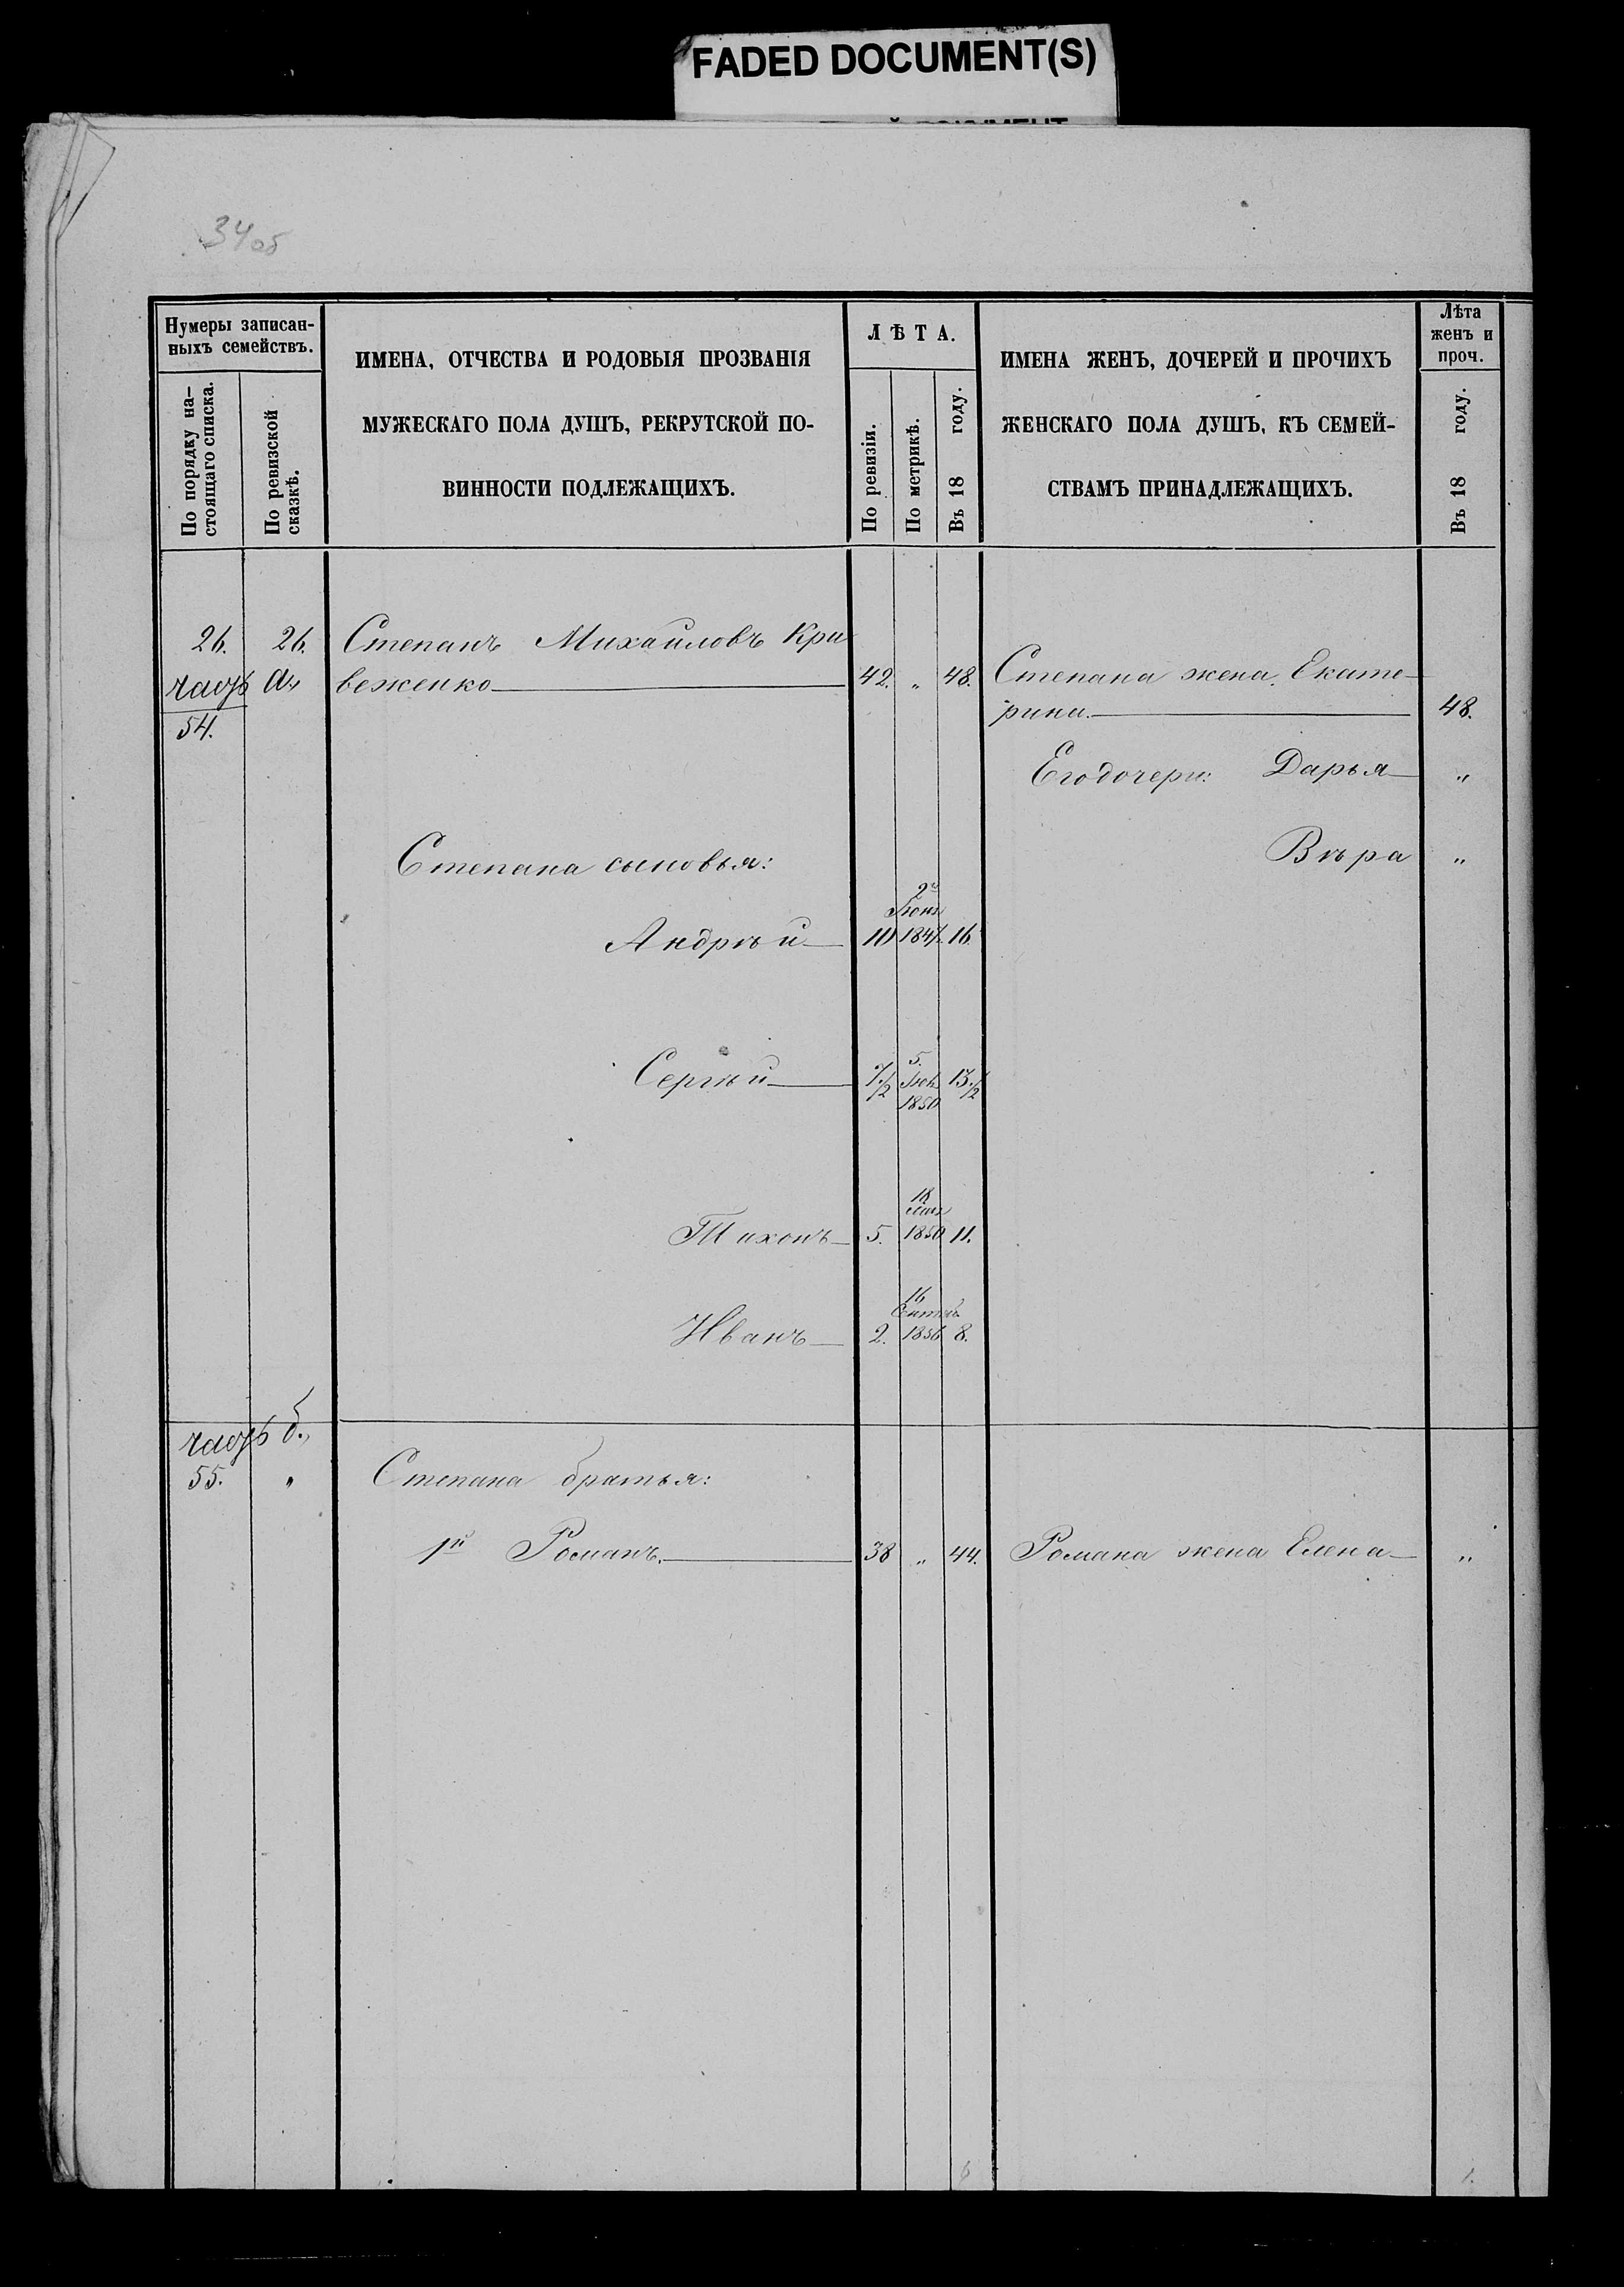 FADED DOCUMENT(S)
34об
Нумеры записан-
ныхъ семействъ.
По порядку на-
стоящаго списка.
По ревизской
сказкѣ.
ИМЕНА, ОТЧЕСТВА И РОДОВЫЯ ПРОЗВАНІЯ
МУЖЕСКАГО ПОЛА ДУШЪ, РЕКРУТСКОЙ ПО-
ВИННОСТИ ПОДЛЕЖАЩИХЪ.
ЛѢТА.
По ревизіи.
По метрикѣ.
Въ 18 году.
ИМЕНА ЖЕНЪ, ДОЧЕРЕЙ И ПРОЧИХЪ
ЖЕНСКАГО ПОЛА ДУШЪ, КЪ СЕМЕЙ-
СТВАМЪ ПРИНАДЛЕЖАЩИХЪ.
Лѣта
женъ и
проч.
Въ 18 году.
26. 26. Степанъ Михайловъ Кри
часть а., веженко 42. „ 48. Степана жена Екате-
54. рина. 48.
Его дочери: Дарья „
Степана сыновья: Вѣра „
2й
Андрѣй 10 184 16.
5.
Сергѣй 7 1/2 13 1/2
1850
18
Тихонъ 5. 1850 11.
16
Сентяб
Иванъ 2. 1856 8.
часть б.,
55. „ Степана братья:
1й Романъ. 38 „ 44. Романа жена Елена „
6 1.